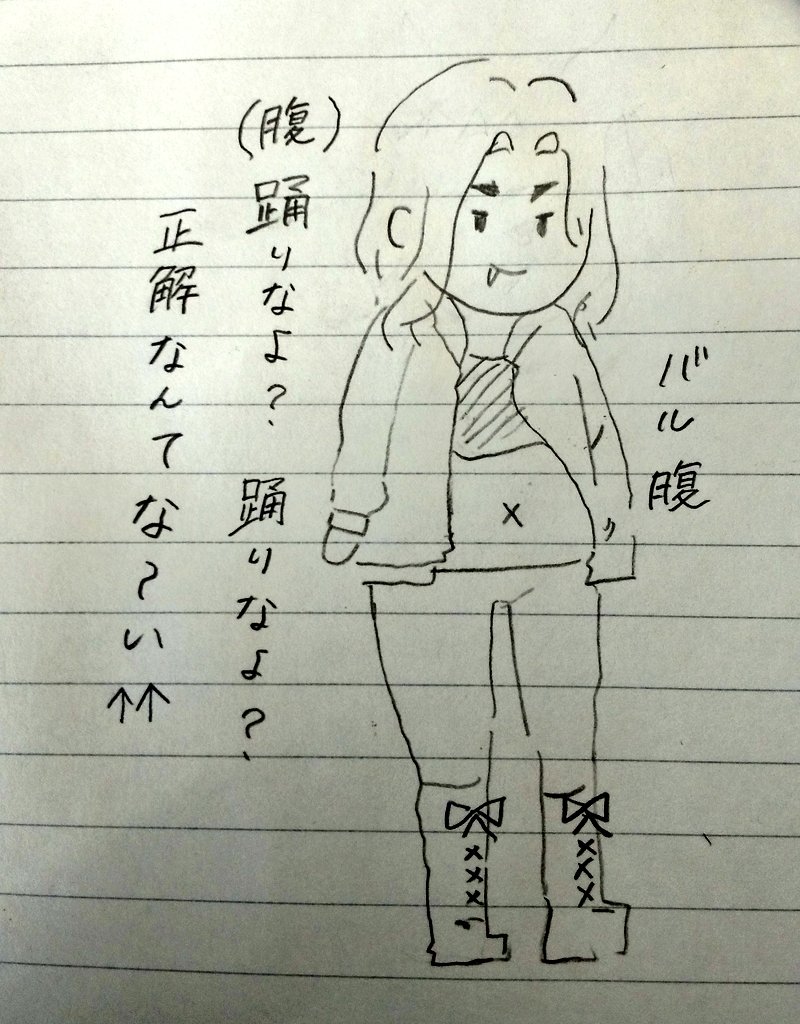 バル腹
(腹)踊りなよ？ 踊りなよ？
正解なんてな～い↑↑